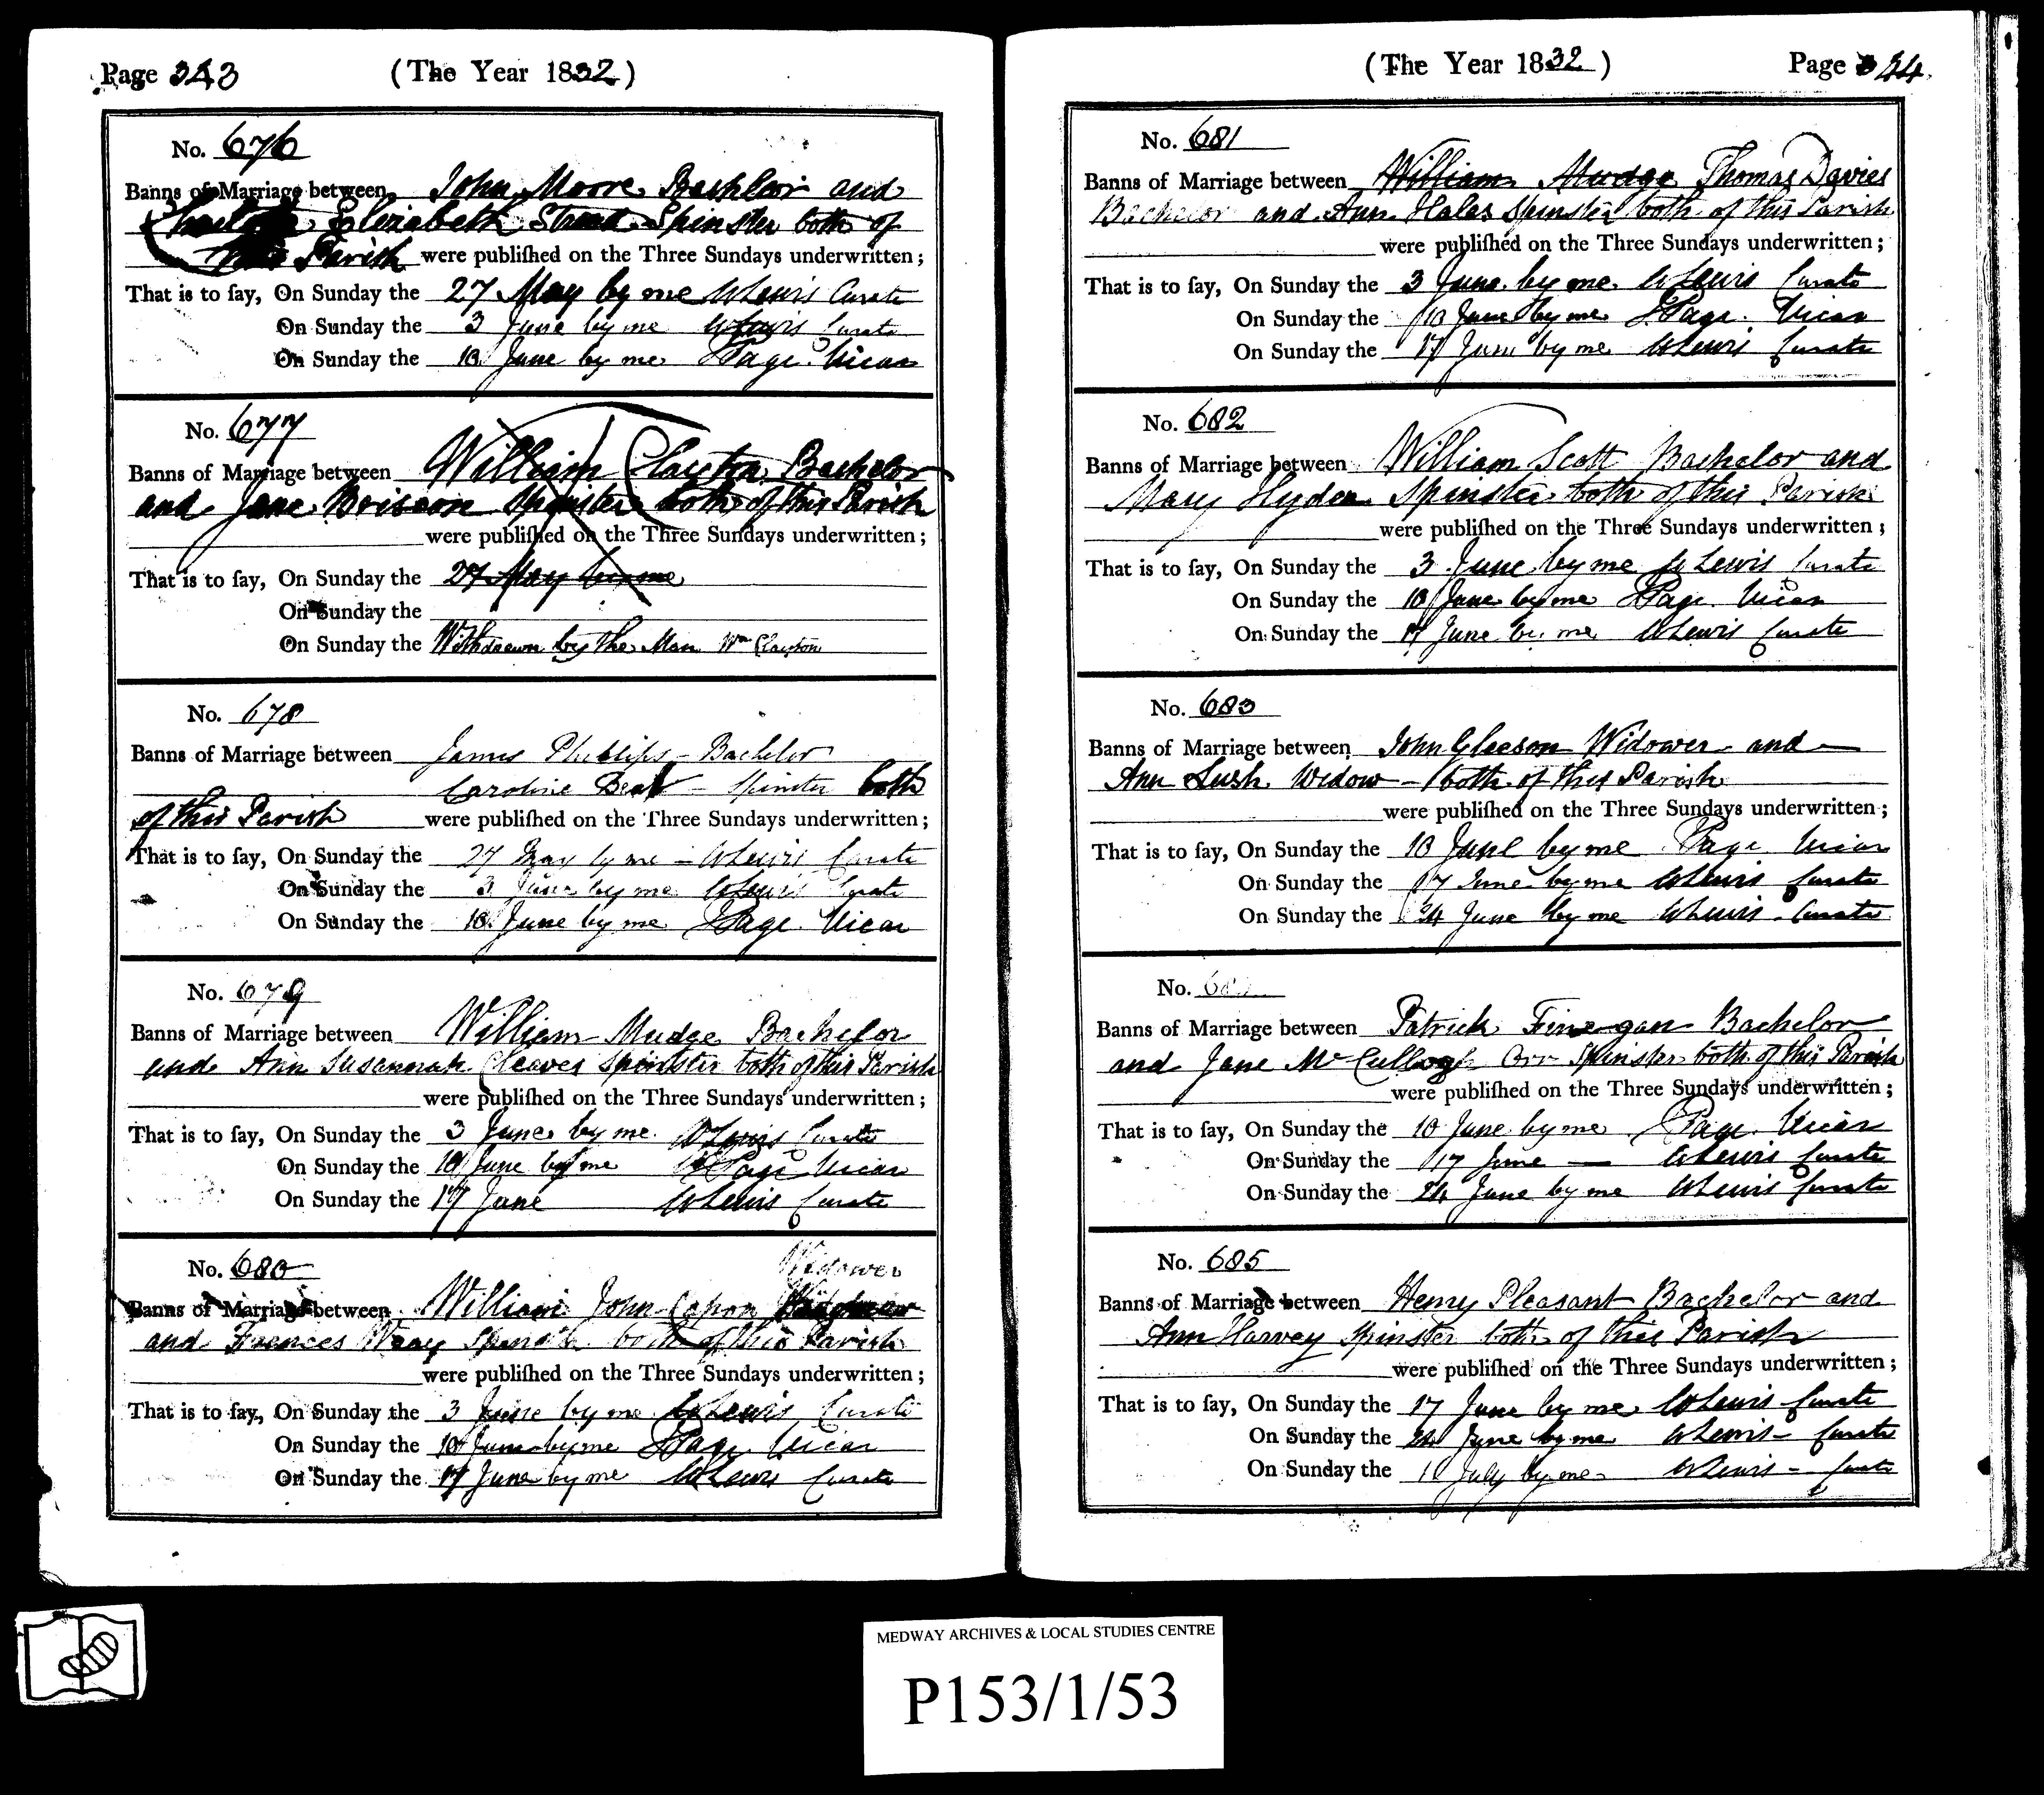 Page 343 (The Year 1832)
No. 676
Banns of Marriage between John Moore Bachelor and
Elizabeth Spinster both of
this Parish were publiſhed on the Three Sundays underwritten;
That is to ſay, On Sunday the 27 May by me W Lewis Curate
On Sunday the 3 June by me W Lewis Curate
On Sunday the 10 June by me Page Vicar
No. 677
Banns of Marriage between William Clayton Bachelor
and Jane Spinster both of this Parish
were publiſhed on the Three Sundays underwritten;
That is to ſay, On Sunday the 27 May by me
On Sunday the
On Sunday the Withdrawn by the Man Wm Clayton
No. 678
Banns of Marriage between James Phillips - Bachelor
Caroline - Spinster both
of this Parish were publiſhed on the Three Sundays underwritten;
That is to ſay, On Sunday the 27 May by me - W Lewis Curate
On Sunday the 3 June by me W Lewis Curate
On Sunday the 10 June by me Page Vicar
No. 679
Banns of Marriage between William Mudge Bachelor
and Ann Susannah Cleaves Spinster both of this Parish
were publiſhed on the Three Sundays underwritten;
That is to ſay, On Sunday the 3 June by me W Lewis Curate
On Sunday the 10 June by me Page Vicar
On Sunday the 17 June W Lewis Curate
No. 680 Widower
Banns of Marriage between William John Capon
and Frances Wray Spinster both of this Parish
were publiſhed on the Three Sundays underwritten;
That is to ſay, On Sunday the 3 June by me W Lewis Curate
On Sunday the 10 June by me Page Vicar
On Sunday the 17 June by me W Lewis Curate
(The Year 1832) Page 344
No. 681
Banns of Marriage between William Mudge Thomas Davies
Bachelor and Ann Hales Spinster both of this Parish
were publiſhed on the Three Sundays underwritten;
That is to ſay, On Sunday the 3 June by me W Lewis Curate
On Sunday the 10 June by me Page Vicar
On Sunday the 17 June by me W Lewis Curate
No. 682
Banns of Marriage between William Scott Bachelor and
Mary Hyden Spinster both of this Parish
were publiſhed on the Three Sundays underwritten;
That is to ſay, On Sunday the 3 June by me W Lewis Curate
On Sunday the 10 June by me Page Vicar
On Sunday the 17 June by me W Lewis Curate
No. 683
Banns of Marriage between John Gleeson Widower and
Ann Lush Widow - both of this Parish
were publiſhed on the Three Sundays underwritten;
That is to ſay, On Sunday the 10 June by me Page Vicar
On Sunday the 17 June by me W Lewis Curate
On Sunday the 24 June by me W Lewis Curate
No.
Banns of Marriage between Patrick Finegan Bachelor
and Jane McCullogh Orr Spinster both of this Parish
were publiſhed on the Three Sundays underwritten;
That is to ſay, On Sunday the 10 June by me Page Vicar
On Sunday the 17 June — W Lewis Curate
On Sunday the 24 June by me W Lewis Curate
No. 685
Banns of Marriage between Henry Pleasant Bachelor and
Ann Harvey Spinster both of this Parish
were publiſhed on the Three Sundays underwritten;
That is to ſay, On Sunday the 17 June by me W Lewis Curate
On Sunday the 24 June by me W Lewis - Curate
On Sunday the July by me W Lewis - Curate
MEDWAY ARCHIVES & LOCAL STUDIES CENTRE
P153/1/53